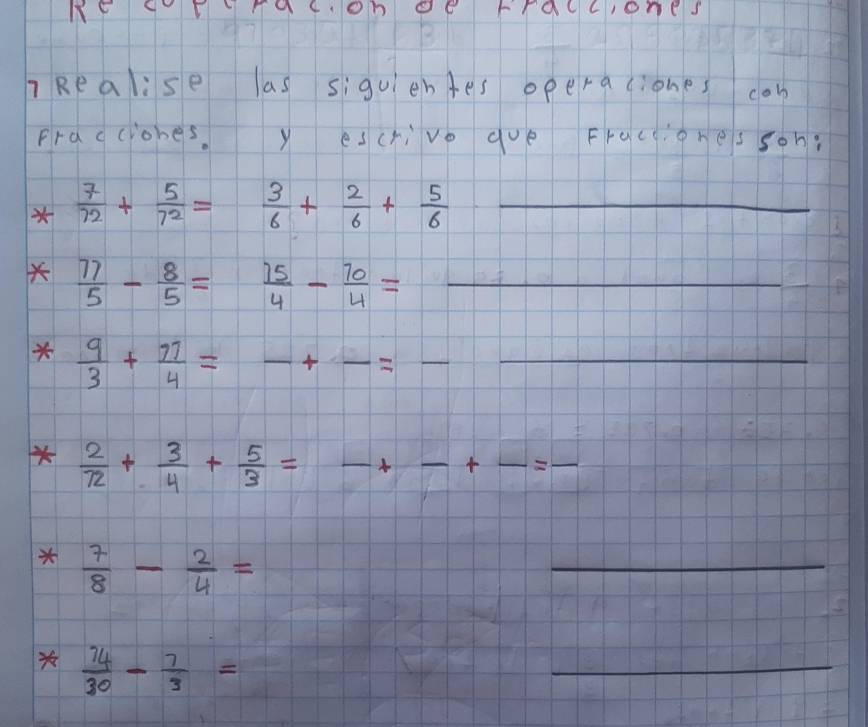 Recuperacion de Fracciones
1 Realise las siguientes operaciones con
Fracciones. y escrivo que Fracciones son:
* 7/12 + 5/12 = 3/6 + 2/6 + 5/6
* 11/5 - 8/5 = 15/4 - 10/4 =
* 9/3 + 11/4 = — + — = —
* 2/12 + 3/4 + 5/3 = — + — + — = —
* 7/8 - 2/4 =
* 14/30 - 1/3 =